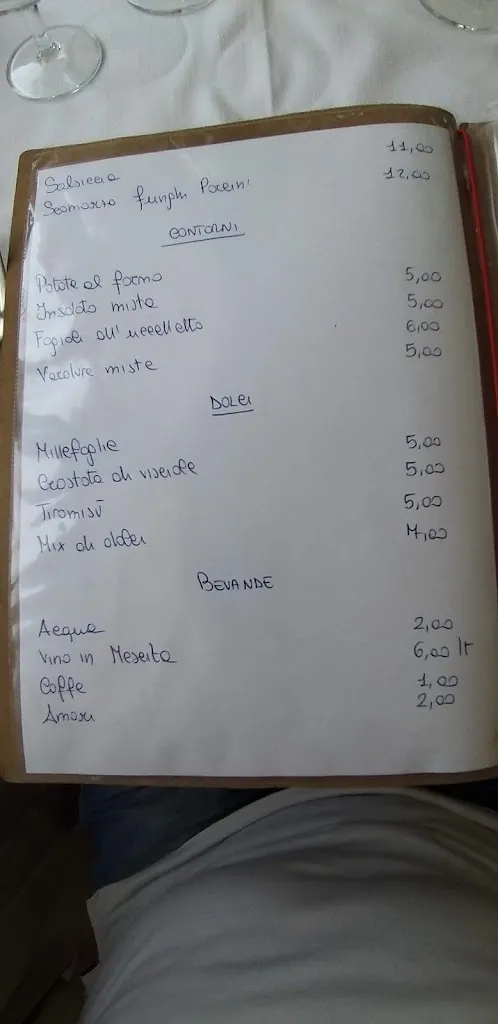 Salsiccia 11,00
Scamorza funghi Porcini 12,00
CONTORNI
Patate al forno 5,00
Insalata mista 5,00
Fagioli all'uccelletto 6,00
Verdure miste 5,00
DOLCI
Millefoglie 5,00
Crostata di visciole 5,00
Tiromisù 5,00
Mix di dolci 7,00
BEVANDE
Acqua 2,00
Vino in Mescita 6,00 lt
Caffe 1,00
Amari 2,00